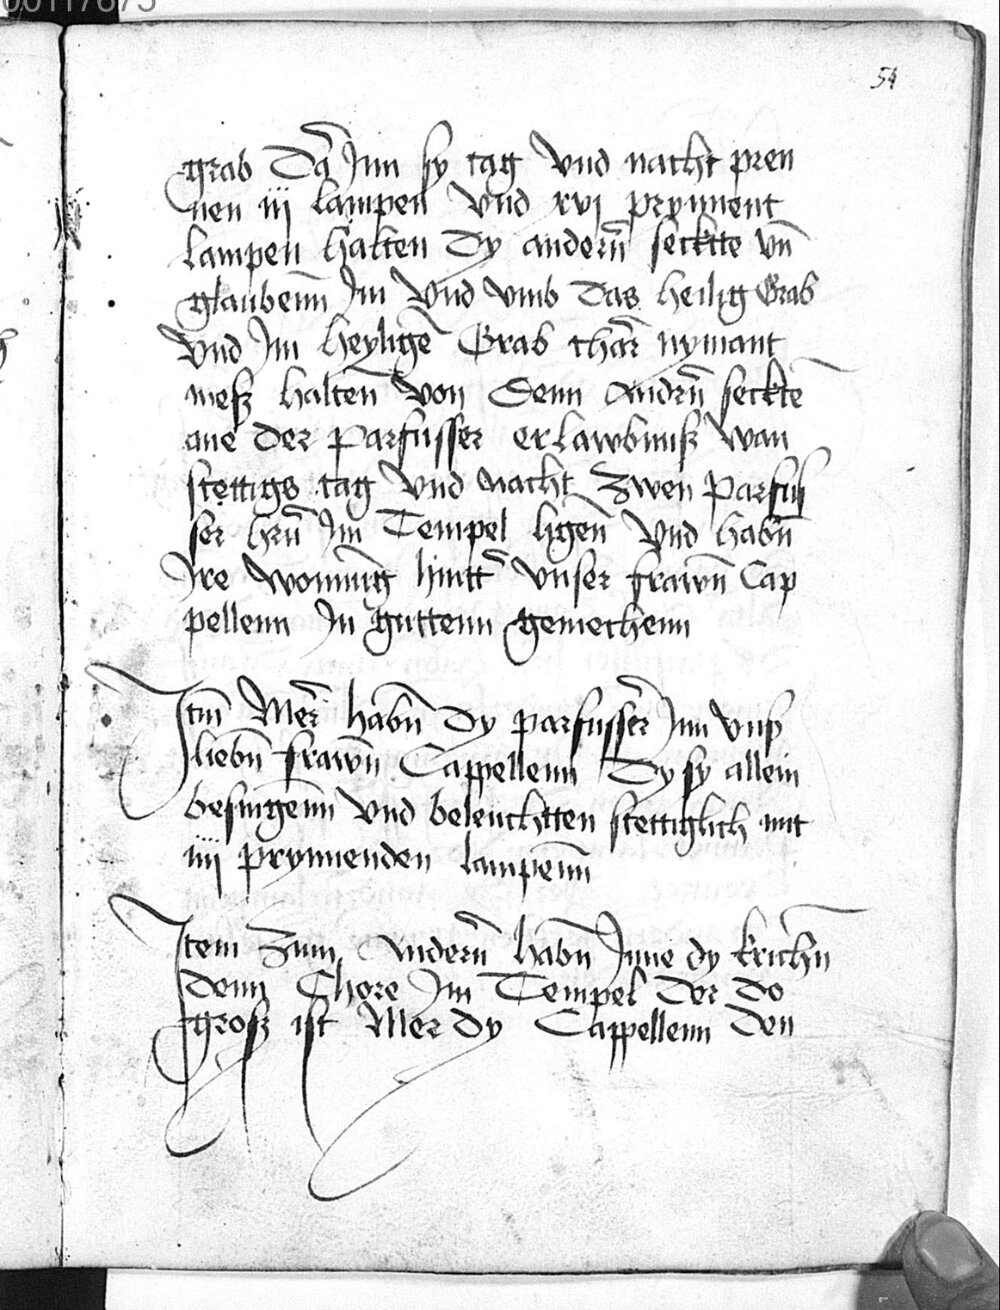 00117675
54
grab Dā Jnn sy tag Vnd nacht pren
nen iij Lampen Vnd xvj prynnent
Lampen halten Dy andern̄ seckte vn̄
glaubenn Jm Vnd vmb Das heilig Grab
Vnd Jm heyligē Grab thar̄ nymant
meß halten Von Denn Andrn̄ seckte
ane Der parfusser erlawbnuß wan
stettigs tag Vnd nacht Zwen Parfus
ser hrn̄ Jm Tempel ligen̄ Vnd habn̄
Jre wonung hintt̄ vnser frawn̄ Cap
pellenn Jn guttenn gemechenn
Itm̄ Mer̄ habn̄ Dy parfusser̄ Jnn vnsr
liebn̄ frawn̄ Cappellenn Dy sy allein
besingenn Vnd beleuchtten stettiglich mit
iiij prynnenden lampenn̄
Item Zum Andern̄ habn̄ Jnne dy krichn̄
Denn Chore Jm Tempel Der do
groß ist Mer Dy Cappellenn Den